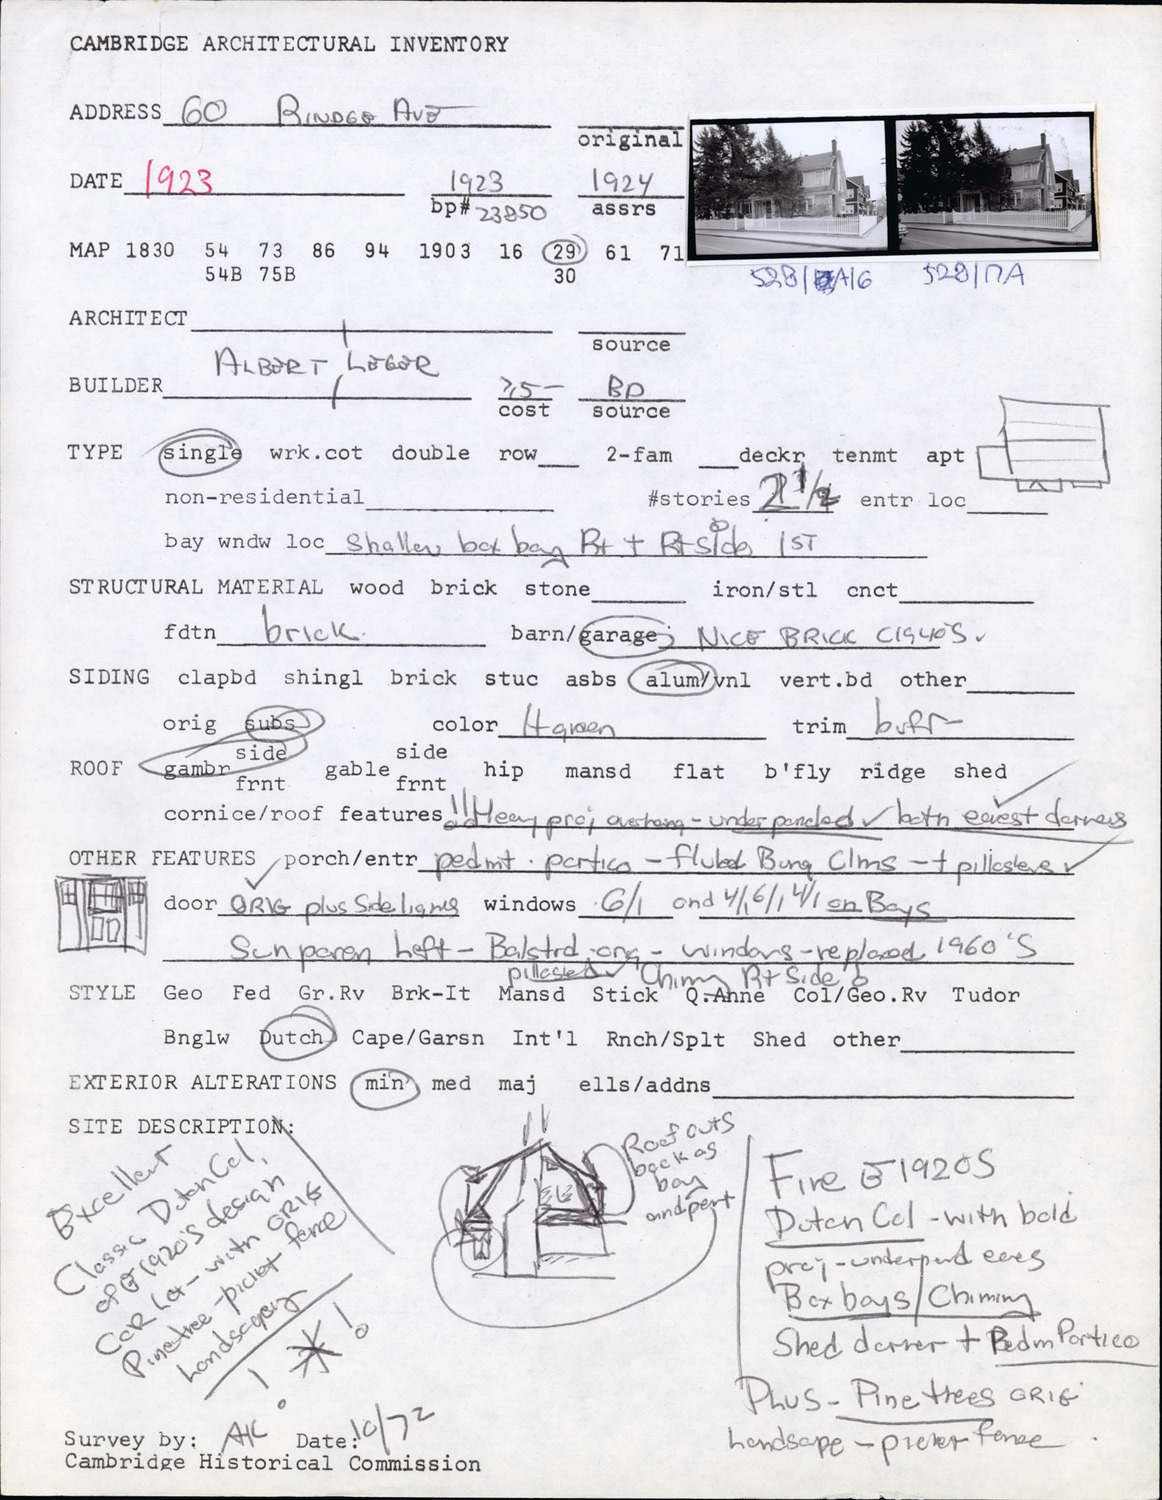 CAMBRIDGE ARCHITECTURAL INVENTORY
ADDRESS 60 RINDGE AVE
original
DATE 1923 1923 1924
bp# 23850 assrs
MAP 1830 54 73 86 94 1903 16 29 61 71
54B 75B 30
528/ A/6 528/17A
ARCHITECT
source
ALBERT LEGER
BUILDER BP
cost source
TYPE single wrk.cot double row 2-fam deckr tenmt apt
non-residential #stories 2 1/2 entr loc
bay wndw loc Shallow box bay Rt + Rt side 1ST
STRUCTURAL MATERIAL wood brick stone iron/stl cnct
fdtn brick barn/garage NICE BRICK C1940'S ✓
SIDING clapbd shingl brick stuc asbs alum/vnl vert.bd other
orig subs color green trim buff
side side
ROOF gambr gable hip mansd flat b'fly ridge shed
frnt frnt
cornice/roof features !! Heavy proj overhang - under paneled ✓ both dormers
OTHER FEATURES ✓ porch/entr pedmt. portico - fluted Clms - + pillasters ✓
door ORIG plus Sidelights windows 6/1 and 4/1, 6/1, 4/1 on Bays
Sun left - - orig - windows - replaced 1960'S
✓ Chimy Rt Side
STYLE Geo Fed Gr.Rv Brk-It Mansd Stick Q.Anne Col/Geo.Rv Tudor
Bnglw Dutch Cape/Garsn Int'l Rnch/Splt Shed other
EXTERIOR ALTERATIONS min med maj ells/addns
SITE DESCRIPTION:
Excellent
Classic Dutch Col,
of 1920's design
COR Lot - with ORIG
Pinetree - picket fence
Landscaping
! * !
Roof cuts
back as
bay
and part
Fine 1920S
Dutch Col - with bold
proj - underpand eves
Box bays/Chimny
Shed dormer + Pedm Portico
PLUS - Pine trees ORIG
Landscape - picket fence
Survey by: AK Date: 10/72
Cambridge Historical Commission